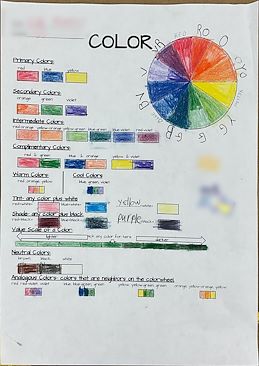 COLOR
RO
O
YO
Y
YG
G
BG
B
BV
V
RV
Primary Colors:
red blue yellow
Secondary Colors:
orange green violet
Intermediate Colors:
red-orange yellow-orange yellow-green blue-green blue-violet red-violet
Complimentary Colors:
Warm Colors:
red orange yellow
Cool Colors:
blue green violet
Tint- any color plus white
red+white= blue+white= yellow +white=
Shade- any color plus black
red+black= blue+black= purple +black=
Value Scale of a Color:
lighter pick any color for here darker
Neutral Colors:
brown black white
Analogous Colors- colors that are neighbors on the colorwheel